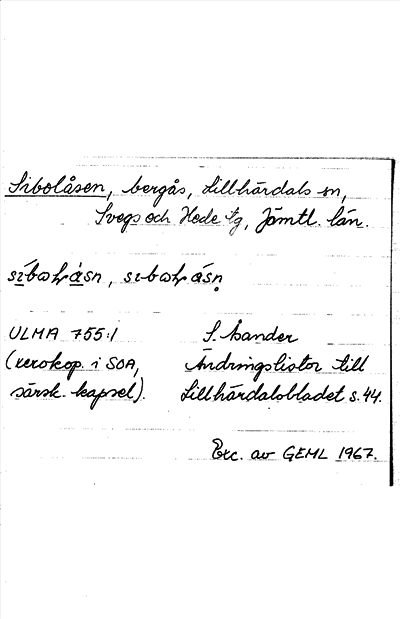 Sibolåsen, bergås, Lillhärdals sn,
Svegs och Hede tg, Jämtl. län.
ULMA 755:1
(xerokop. i SOA,
särsk. kapsel).
S. Isander
Ändringslistor till
Lillhärdalsbladet s. 44.
Exc. av GEML 1967.